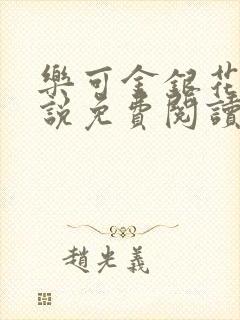 樂可金銀花
說免費閱讀
趙光義